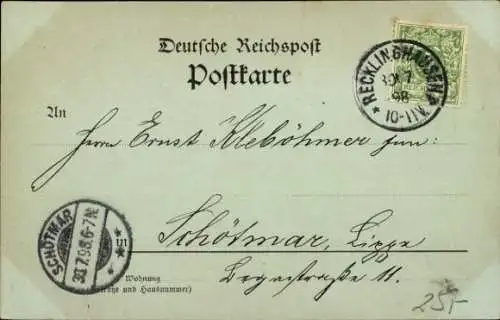 Deutsche Reichspost
Postkarte
RECKLINGHAUSEN
7
98
10-11V.
An
Herrn Ernst Kleböhmer jun:
in
SCHÖTMAR
30.7.98.6-7N.
Schötmar, Lippe
Wohnung
(Straße und Hausnummer)
Begastraße 11.
25,-